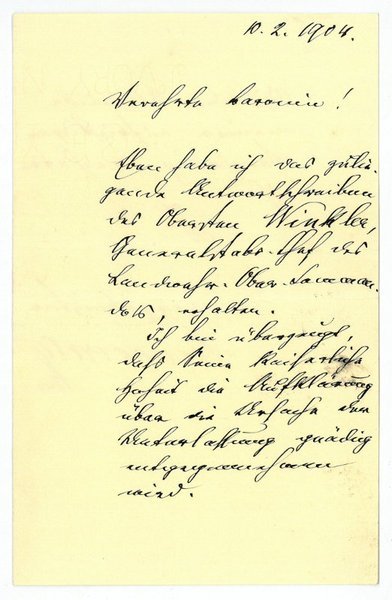 10. 2. 1904.
Verehrte Baronin!
Eben habe ich das
Antwortschreiben
des Obersten Winkler,
Generalstabs-Chef des
Landwehr-Ober-Comman-
dos, erhalten.
Ich bin überzeugt,
dass Seine Kaiserliche
Hoheit die Aufklärung
über die Ursache der
Unterlassung gnädig
entgegennehmen
wird.